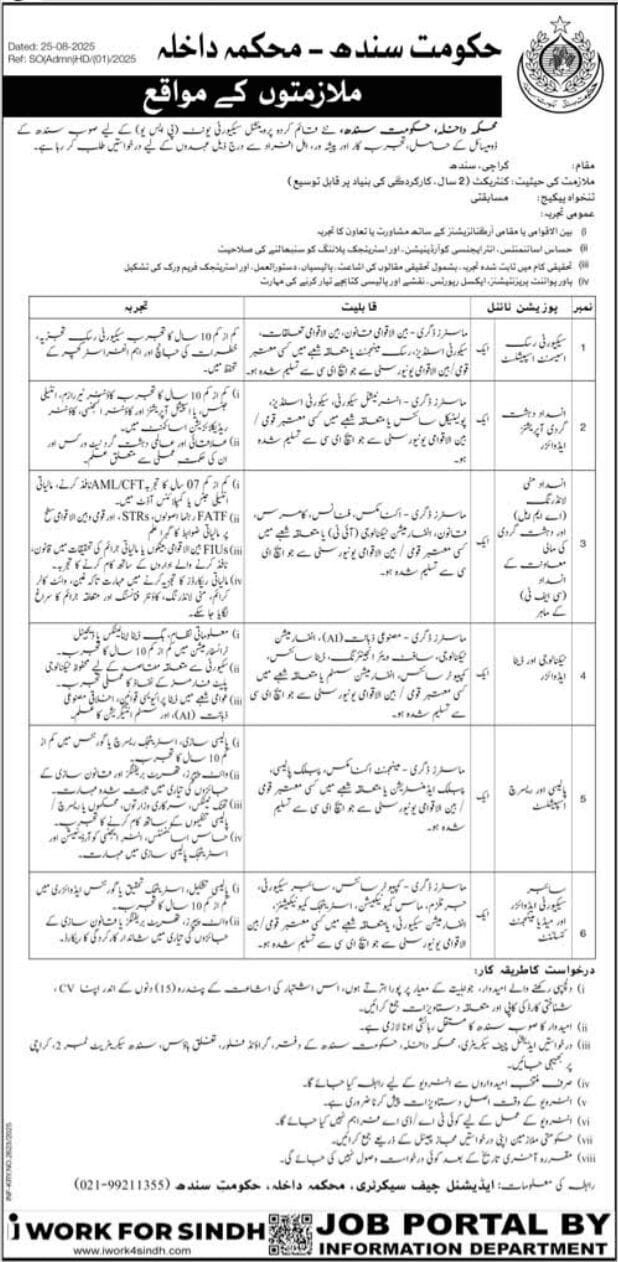 Dated: 25-08-2025
Ref: SO(Admn)HD/(01)/2025
حکومت سندھ - محکمہ داخلہ
ملازمتوں کے مواقع
محکمہ داخلہ، حکومت سندھ، نئے قائم کردہ پروینشل سیکیورٹی یونٹ (پی ایس یو) کے لیے صوبہ سندھ کے
ڈومیسائل کے حامل، تجربہ کار اور پیشہ ور، اہل افراد سے درج ذیل عہدوں کے لیے درخواستیں طلب کر رہا ہے۔
مقام: کراچی، سندھ
ملازمت کی حیثیت: کنٹریکٹ (2 سال، کارکردگی کی بنیاد پر قابل توسیع)
تنخواہ پیکیج: مسابقتی
عمومی تجربہ:
i) بین الاقوامی یا مقامی آرگنائزیشنز کے ساتھ مشاورت یا تعاون کا تجربہ
ii) حساس اسائنمنٹس، انٹرایجنسی کوآرڈینیشن، اور اسٹریٹجک پلاننگ کو سنبھالنے کی صلاحیت
iii) تحقیقی کام میں ثابت شدہ تجربہ، بشمول تحقیقی مقالوں کی اشاعت، پالیسیاں، دستورالعمل، اور اسٹریٹجک فریم ورک کی تشکیل
iv) پاور پوائنٹ پریزنٹیشنز، ایکسل رپورٹس، نقشے اور پالیسی کتابچے تیار کرنے کی مہارت
نمبر پوزیشن ٹائٹل قابلیت تجربہ
1
سیکیورٹی رسک
اسیسمنٹ اسپیشلسٹ
ایک
ماسٹرز ڈگری - بین الاقوامی قانون، بین الاقوامی تعلقات،
سیکورٹی اسٹڈیز، رسک مینجمنٹ یا متعلقہ شعبے میں کسی معتبر
قومی/ بین الاقوامی یونیورسٹی سے جو ایچ ای سی سے تسلیم شدہ ہو۔
کم از کم 10 سال کا تجربہ سیکیورٹی رسک تجزیہ،
خطرات کی جانچ اور اہم انفراسٹرکچر کے
تحفظ میں۔
2
انسداد دہشت
گردی آپریشنز
ایڈوائزر
ایک
ماسٹرز ڈگری - انٹرنیشنل سیکورٹی، سیکورٹی اسٹڈیز،
پولیٹیکل سائنس یا متعلقہ شعبے میں کسی معتبر قومی /
بین الاقوامی یونیورسٹی سے جو ایچ ای سی سے تسلیم شدہ
ہو۔
i) کم از کم 10 سال کا تجربہ کاؤنٹر ٹیررازم، انٹیلی
جنس، یا اسپیشل آپریشنز اور کاؤنٹر
ریڈیکلائزیشن اسائنمنٹ میں۔
ii) علاقائی اور عالمی دہشت گرد نیٹ ورکس اور
ان کی حکمت عملی سے متعلق علم۔
3
انسداد منی
لانڈرنگ
(اے ایم ایل)
اور دہشت گردی
کی مالی
معاونت کے
انسداد
(سی ایف ٹی)
کے ماہر
ایک
ماسٹرز ڈگری - اکنامکس، فنانس، کامرس،
قانون، انفارمیشن ٹیکنالوجی (آئی ٹی) یا متعلقہ شعبے میں
کسی معتبر قومی / بین الاقوامی یونیورسٹی سے جو ایچ ای
سی سے تسلیم شدہ ہو۔
i) کم از کم 07 سال کا تجربہ AML/CFT نافذ کرنے، مالیاتی
انٹیلی جنس یا کمپلائنس آڈٹ میں۔
ii) FATF رہنما اصولوں، STRs، اور قومی و بین الاقوامی سطح
پر مالیاتی ضوابط کا گہرا علم
iii) FIUs بین الاقوامی بینکوں یا مالیاتی جرائم کی تحقیقات میں قانون
نافذ کرنے والے اداروں کے ساتھ کام کرنے کا تجربہ۔
iv) مالیاتی ریکارڈز کا تجزیہ کرنے میں مہارت تاکہ غبن، وائٹ کالر
کرائم، منی لانڈرنگ، کاؤنٹر فنانسنگ اور متعلقہ جرائم کا سراغ
لگایا جا سکے۔
4
ٹیکنالوجی اور ڈیٹا
ایڈوائزر
ایک
ماسٹرز ڈگری - مصنوعی ذہانت (AI)، انفارمیشن
ٹیکنالوجی، سافٹ ویئر انجینئرنگ، ڈیٹا سائنس،
کمپیوٹر سائنس، انفارمیشن سسٹم یا متعلقہ شعبے میں
کسی معتبر قومی / بین الاقوامی یونیورسٹی سے جو ایچ ای سی
سے تسلیم شدہ ہو۔
i) معلوماتی نظام، بگ ڈیٹا اینالیٹکس یا ڈیجیٹل
ٹرانسفارمیشن میں کم از کم 10 سال کا تجربہ۔
ii) سیکورٹی سے متعلقہ مقاصد کے لیے محفوظ ٹیکنالوجی
پلیٹ فارمز کے نفاذ کا عملی تجربہ۔
iii) عوامی شعبے میں ڈیٹا پرائیویسی قوانین، اخلاقی مصنوعی
ذہانت (AI)، اور سسٹم انٹیگریشن کا علم۔
5
پالیسی اور ریسرچ
اسپیشلسٹ
ایک
ماسٹرز ڈگری - مینجمنٹ اکنامکس، پبلک پالیسی،
پبلک ایڈمنسٹریشن یا متعلقہ شعبے میں کسی معتبر قومی
/ بین الاقوامی یونیورسٹی سے جو ایچ ای سی سے تسلیم
شدہ ہو۔
i) پالیسی سازی، اسٹریٹجک ریسرچ یا گورننس میں کم از کم
10 سال کا تجربہ۔
ii) وائٹ پیپرز، تھریٹ بریفنگز اور قانون سازی کے
جائزوں کی تیاری میں ثابت شدہ مہارت۔
iii) تھنک ٹینکس، سرکاری وزارتوں، محکموں یا ریسرچ /
پالیسی تنظیموں کے ساتھ کام کرنے کا تجربہ۔
iv) حساس اسائنمنٹس، انٹر ایجنسی کوآرڈینیشن اور
اسٹریٹجک پالیسی سازی میں مہارت۔
6
سائبر
سیکیورٹی ایڈوائزر
اور میڈیا مینجمنٹ
کنسلٹنٹ
ایک
ماسٹرز ڈگری - کمپیوٹر سائنس، سائبر سیکیورٹی،
جرنلزم، ماس کمیونیکیشن، اسٹریٹجک کمیونیکیشنز،
انفارمیشن سیکیورٹی، یا متعلقہ شعبے میں کسی معتبر قومی/ بین
الاقوامی یونیورسٹی سے جو ایچ ای سی سے تسلیم شدہ ہو۔
i) پالیسی تشکیل، اسٹریٹجک تحقیق یا گورننس ایڈوائزری میں
کم از کم 10 سال کا تجربہ۔
ii) وائٹ پیپرز، تھریٹ بریفنگز یا قانون سازی کے
جائزوں کی تیاری میں شاندار کارکردگی کا ریکارڈ۔
درخواست کا طریقہ کار:
i) دلچسپی رکھنے والے امیدوار، جو اہلیت کے معیار پر پورا اترتے ہوں، اس اشتہار کی اشاعت کے پندرہ (15) دنوں کے اندر اپنا CV،
شناختی کارڈ کی کاپی اور متعلقہ دستاویزات جمع کرائیں۔
ii) امیدوار کا صوبہ سندھ کا مستقل رہائشی ہونا لازمی ہے۔
iii) درخواستیں ایڈیشنل چیف سیکریٹری، محکمہ داخلہ، حکومت سندھ کے دفتر، گراؤنڈ فلور، تغلق ہاؤس، سندھ سیکریٹریٹ نمبر 2، کراچی
پر بھیجی جائیں۔
iv) صرف منتخب امیدواروں سے انٹرویو کے لیے رابطہ کیا جائے گا۔
v) انٹرویو کے وقت اصل دستاویزات پیش کرنا ضروری ہے۔
vi) انٹرویو کے عمل کے لیے کوئی ٹی اے/ڈی اے فراہم نہیں کیا جائے گا۔
vii) حکومتی ملازمین اپنی درخواستیں مجاز چینل کے ذریعے جمع کرائیں۔
viii) مقررہ آخری تاریخ کے بعد کوئی درخواست وصول نہیں کی جائے گی۔
رابطہ کی معلومات: ایڈیشنل چیف سیکرٹری، محکمہ داخلہ، حکومت سندھ (021-99211355)
INF-KRY.NO.2623/2025
i WORK FOR SINDH
www.iwork4sindh.com
JOB PORTAL BY
INFORMATION DEPARTMENT